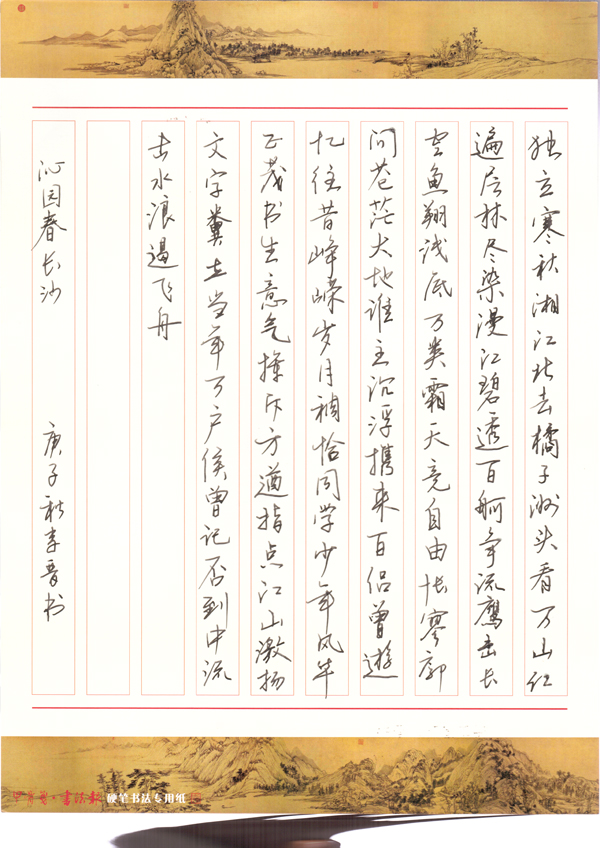 独立寒秋湘江北去橘子洲头看万山红
遍层林尽染漫江碧透百舸争流鹰击长
空鱼翔浅底万类霜天竞自由怅寥郭
问苍茫大地谁主沉浮携来百侣曾遊
忆往昔峥嵘岁月稠恰同学少年风华
正茂书生意气挥斥方遒指点江山激扬
文字粪土当年万户侯曾记否到中流
击水浪遏飞舟
沁园春长沙
庚子秋李晋书
甲骨学·书法报 硬笔书法专用纸